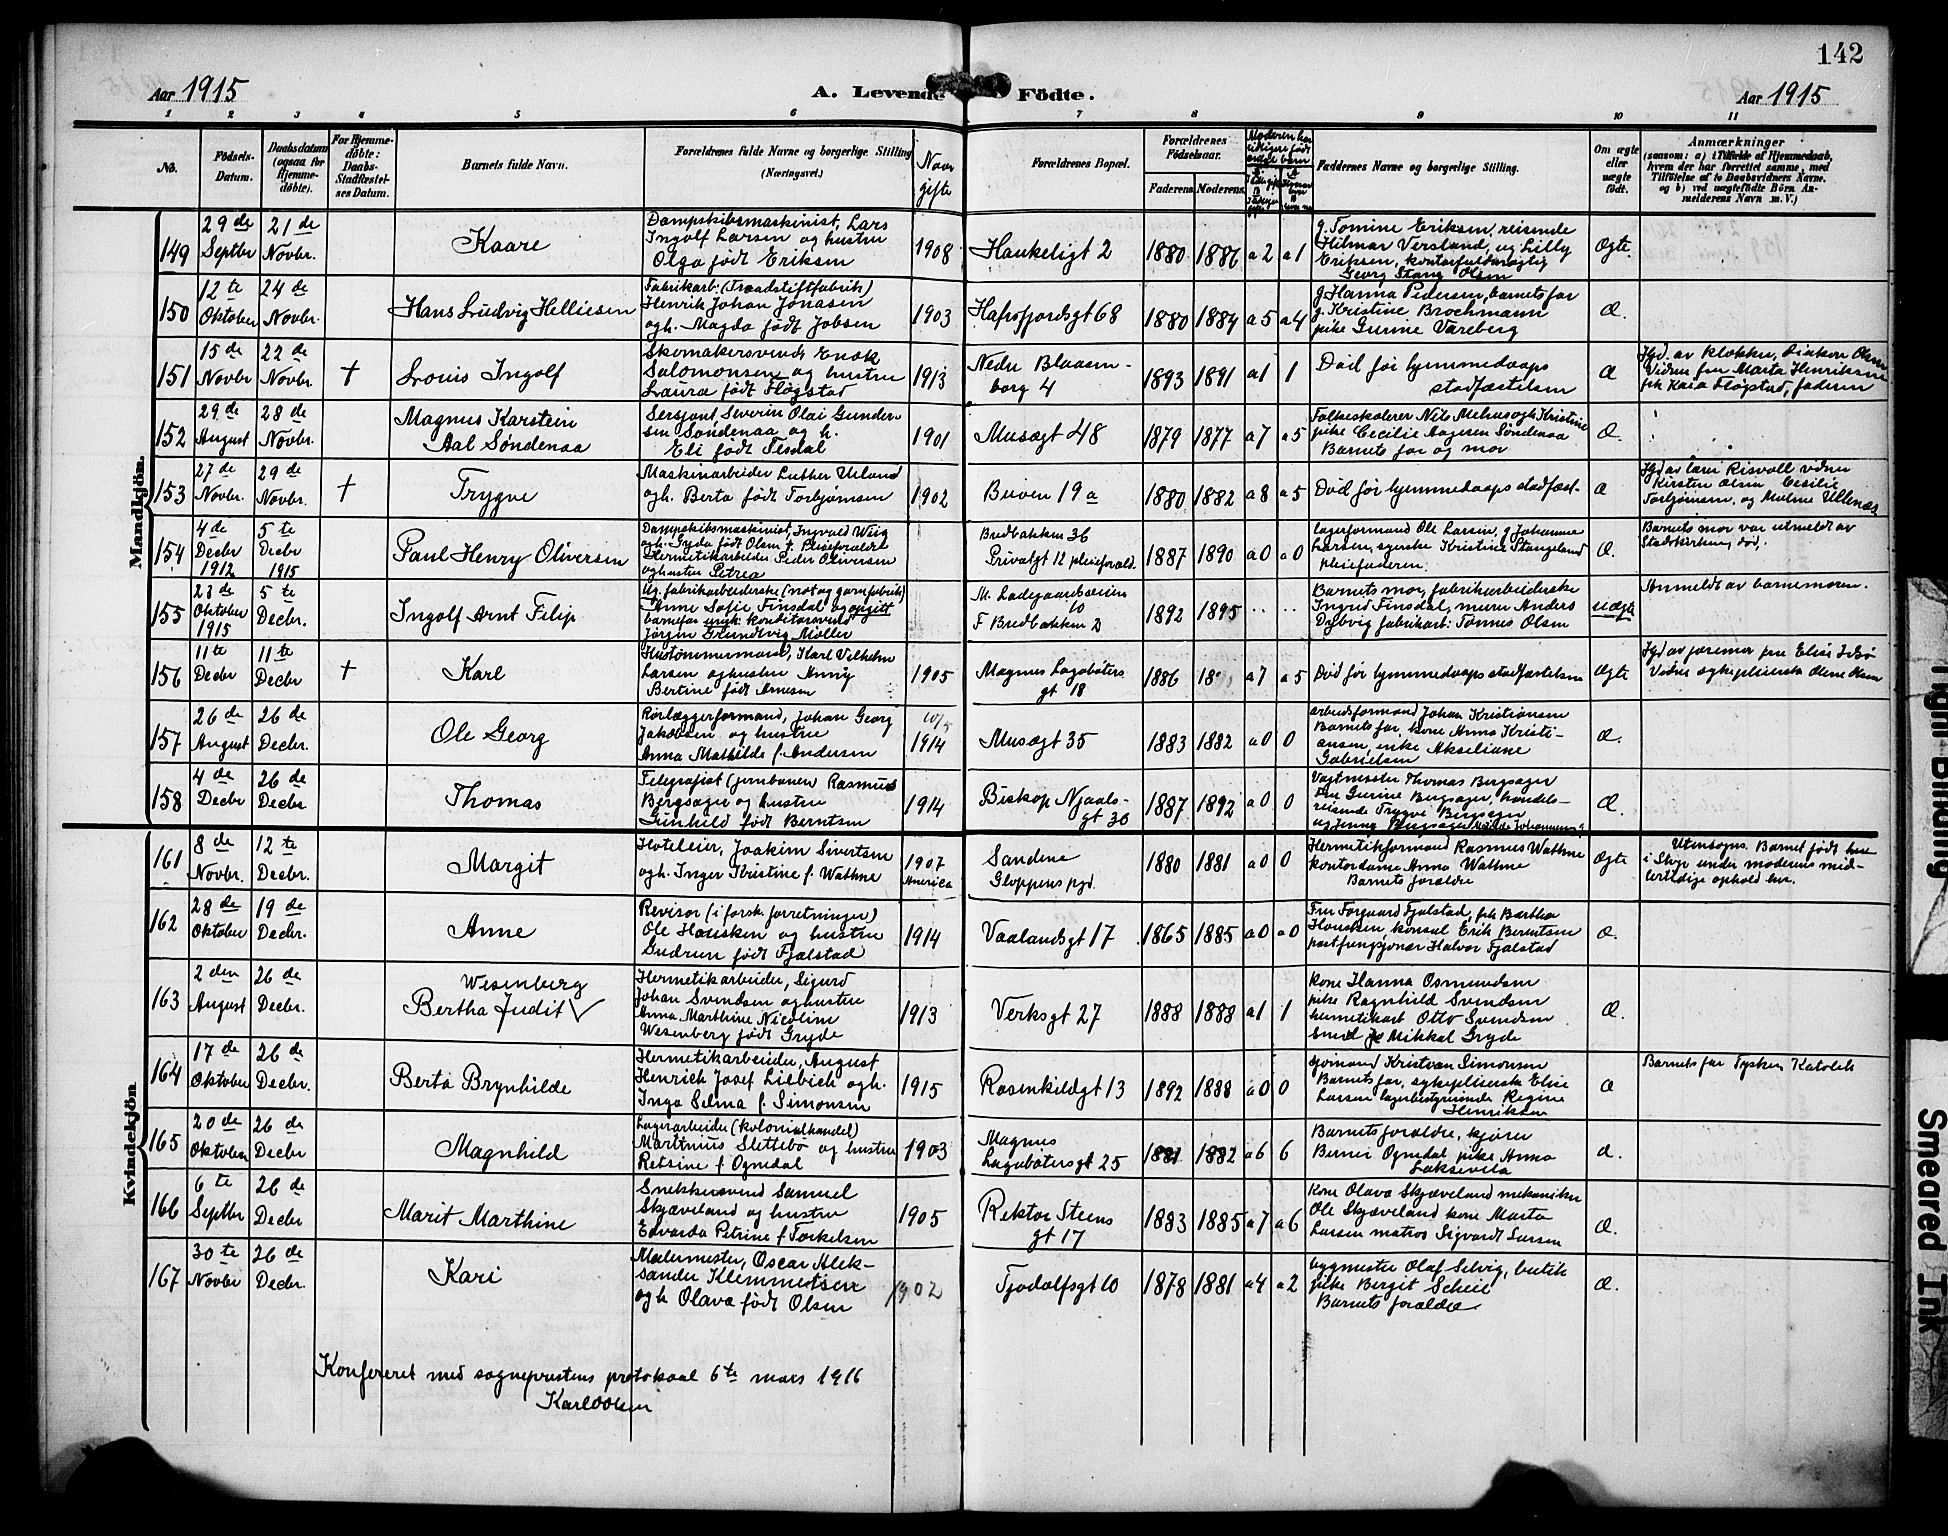 142
Aar 1915
A. Levende Födte.
Aar 1915
1 2 3 4 5 6 7 8 9 10 11
No.
Födsels-Datum.
Daabsdatum (ogsaa for Hjemme-döbte).
For Hjemme-döbte: Daabs-Stadfæstel-ses Datum.
Barnets fulde Navn.
Forældrenes fulde Navne og borgerlige Stilling (Næringsvei.)
Naar gifte
Forældrenes Bopæl.
Forældrenes Födselsaar.
Faderens. Moderens.
Faddernes Navne og borgerlige Stilling.
Om ægte eller uægte födt.
Anmærkninger
(saasom: a) i Tilfælde af Hjemmedaab,
hvem der har forrettet samme, med
Tilföielse af to Daabsvidners Navne.
og b) ved uægtefödte Börn An-
melderens Navn m. V.)
Mandkjön.
149
29 de Septbr
21 de Novbr.
Kaare
Dampskibsmaskinist, Lars
Ingolf Larsen og hustru
Olga født Eriksen
1908
Haukeligt 2
1880 1886 a 2 a 1
g. Tomine Eriksen, reisende
Hilmar Versland, ug. Lilly
Eriksen, kontorfuldmægtig
Georg Stang Olsen
Ægte.
150
12 te Oktober
24 de Novbr.
Hans Ludvig Helliesen
Fabrikarb. (Traadstiftfabrik)
Henrik Johan Jonasen
ogh. Magda født Jobsen
1903
Hafrsfjordsgt 68
1880 1884 a 5 a 4
g. Hanna Pedersen, barnets far
g. Kristine Brochmann
pike Gurine Vareberg
Æ.
151
15 de Novbr
22 de Novbr.
†
Louis Ingolf
Skomakersvend, Enok
Salomonsen og hustru
Laura født Fløgstad
1913
Nedre Blaasen-
borg 4
1893 1891 a 1 1
Død før hjemmedaaps
stadfæstelsen
Æ
Hjd. av klokker, diakon Olsen
Vidner fru Marta Henriksen
frk Kaia Fløgstad, faderen
152
29 de August
28 de Novbr.
Magnus Karstein
Aal Søndenaa
Sersjant, Severin Olai Gunder-
sen Søndenaa og h.
Eli født Tesdal
1901
Musægt 48
1879 1877 a 7 a 5
Folkeskolelærer Nils Mehus og h Kristine
pike Cecilie Aagesen Søndenaa
Barnets far og mor
Æ.
153
27 de Novbr.
29 de Novbr.
†
Trygve
Maskinarbeider Luther Ueland
ogh. Berta født Torbjørnsen
1902
Breven 19 a
1880 1882 a 8 a 5
Død før hjemmedaaps stadfæst-
Æ
Hjd av lærer Risvoll vidner
Kirsten Olsen Cecilie
Torbjørnsen, og Malene Ullenæs
154
4 de Decbr 1912
5 te Decbr 1915
Paul Henry Oliversen
Dampskibsmaskinist, Ingvald Wiig
ogh. Gyda født Olsen †. Pleieforældre
Hermetikarbeider Peder Oliversen
og hustru Petrea
Bredbakken 36
Privatgt 12 pleieforæld.
1887 1890 a 0 a 0
Lagerformand Ole Larsen, g. Johanne
Larsen, syerske Kristine Stangeland
pleiefaderen.
Æ.
Barnets mor var utmeldt av
Statskirken, død.
155
23 de Oktober 1915
5 te Decbr.
Ingolf Arnt Filip
Ug. fabrikarbeiderske (not og garnfabrik)
Anne Sofie Finsdal og opgitt
barnefar ungk. konditorsvend
Jørgen Grundtvig Møller
M. Ladegaardsveien
10
F Bredbakken 2
1892 1895 .. ..
Barnets mor, fabrikarbeiderske
Ingrid Finsdal, murer Anders
Dybvig fabrikarb: Tønnes Olsen
uægte
Anmeldt av barnemoren.
156
11 te Decbr
11 te Decbr
†
Karl
Hustømmermand, Karl Vilhelm
Larsen og hustru Anny
Bertine født Arnesen
1905
Magnus Lagabøters
gt 18
1886 a 7 a 5
Død før hjemmedaaps stadfæstelsen
Ægte
Hjd av jordmor fru Elise
Vidner sykepleierske Olene
157
26 de August
26 de Decbr.
Ole Georg
Rørlæggerformand, Johan Georg
Jakobsen og hustru
Anna Mathilde f. Andersen
10/5 1914
Musægt 35
1883 1882 a 0 0
Arbeidsformand Johan Kristiansen
Barnets far, kone Anna Kristi-
ansen, enke Akseliane
Gabrielsen
Æ.
158
4 de Decbr
26 de Decbr.
Thomas
Telegrafist (jernbanen) Rasmus
Bergsager og hustru
Gunhild født Berntsen
1914
Biskop Njaals-
gt 30
1887 1892 a 0 0
Vagtmester Thomas Bergsager
Fru Gurine Bergsager, handels-
reisende Trygve Bergsager
og Jenny Bergsager
Æ.
Kvindekjön
161
8 de Novbr.
12 te Decbr.
Margit
Hoteleier, Joakim Sivertsen
ogh. Inger Kristine f. Wathne
1907 America
Sandene
Gloppens pgd.
1880 1881 a 0 0
Hermetikformand Rasmus Wathne
kontordame Anna Wathne
Barnets forældre
Ægte
Utensogns. Barnet født her
i Stvgr under moderens mid-
lertidige ophold her.
162
28 de Oktober
19 de Decbr.
Anne
Revisor (i forsk. forretninger)
Ole Hausken og hustru
Gudrun født Fjalstad
1914
Vaalandsgt 17
1865 1885 a 0 a 0
Fru Torgaard Fjalstad, frk Bertha
Hausken, konsul Erik Berentsen
postfungsjonær Halvor Fjalstad
Æ.
163
2 den August
26 de Decbr.
Wesenberg
Bertha Judit √
Hermetikarbeider, Sigurd
Johan Svendsen og hustru
Anna Marthine Nicoline
Wesenberg født Gryde
1913
Verksgt 27
1888 1888 a 1 1
kone Hanna Osmundsen
pike Ragnhild Svendsen
hermetikarb Otto Svendsen
smed Mikkal Gryde
Æ.
164
17 de Oktober
26 de Decbr.
Berta Brynhilde
Hermetikarbeider, August
Henrich Josef Liebich ogh.
Inga Selma f. Simonsen
1915
Rosenkildgt 13
1892 1888 a 0 0
sjømand Kristian Simonsen
Barnets far, sykepleierske Elise
Larsen lagerbestyrerinde Regine
Henriksen
Æ
Barnets far Tysker, Katolik
165
20 de Oktober
26 de Decbr
Magnhild
Lagerarbeider (kolonialhandel)
Martinius Slettebø og hustru
Retsine f Ognedal
1903
Magnus
Lagabøtersgt 25
1881 1882 a 6 6
Barnets forældre, kjører
Berner Ognedal pike Anna
Laksevela
Æ.
166
6 te Septbr
26 de Decbr
Marit Marthine
Snekkersvend Samuel
Skjæveland og hustru
Edvarda Petrine f Torkelsen
1905
Rektor Steens
gt 17
1883 1885 a 7 a 6
Kone Olava Skjæveland mekaniker
Ole Skjæveland kone Marta
Larsen matros Sigvardt Larsen
Æ.
167
30 te Novbr
26 de Decbr.
Kari
Malermester, Oscar Alek-
sander Klemmetsen
ogh Olava født Olsen
1902
Tjodolfsgt 10
1878 1881 a 4 a 2
bygmester Olaf Selvig, butik
pike Bergit Scheie
Barnets forældre
Æ.
Konfereret med sogneprestens protokoal 6te mars 1916
Karl Olsen
Tight Binding
Smeared Ink